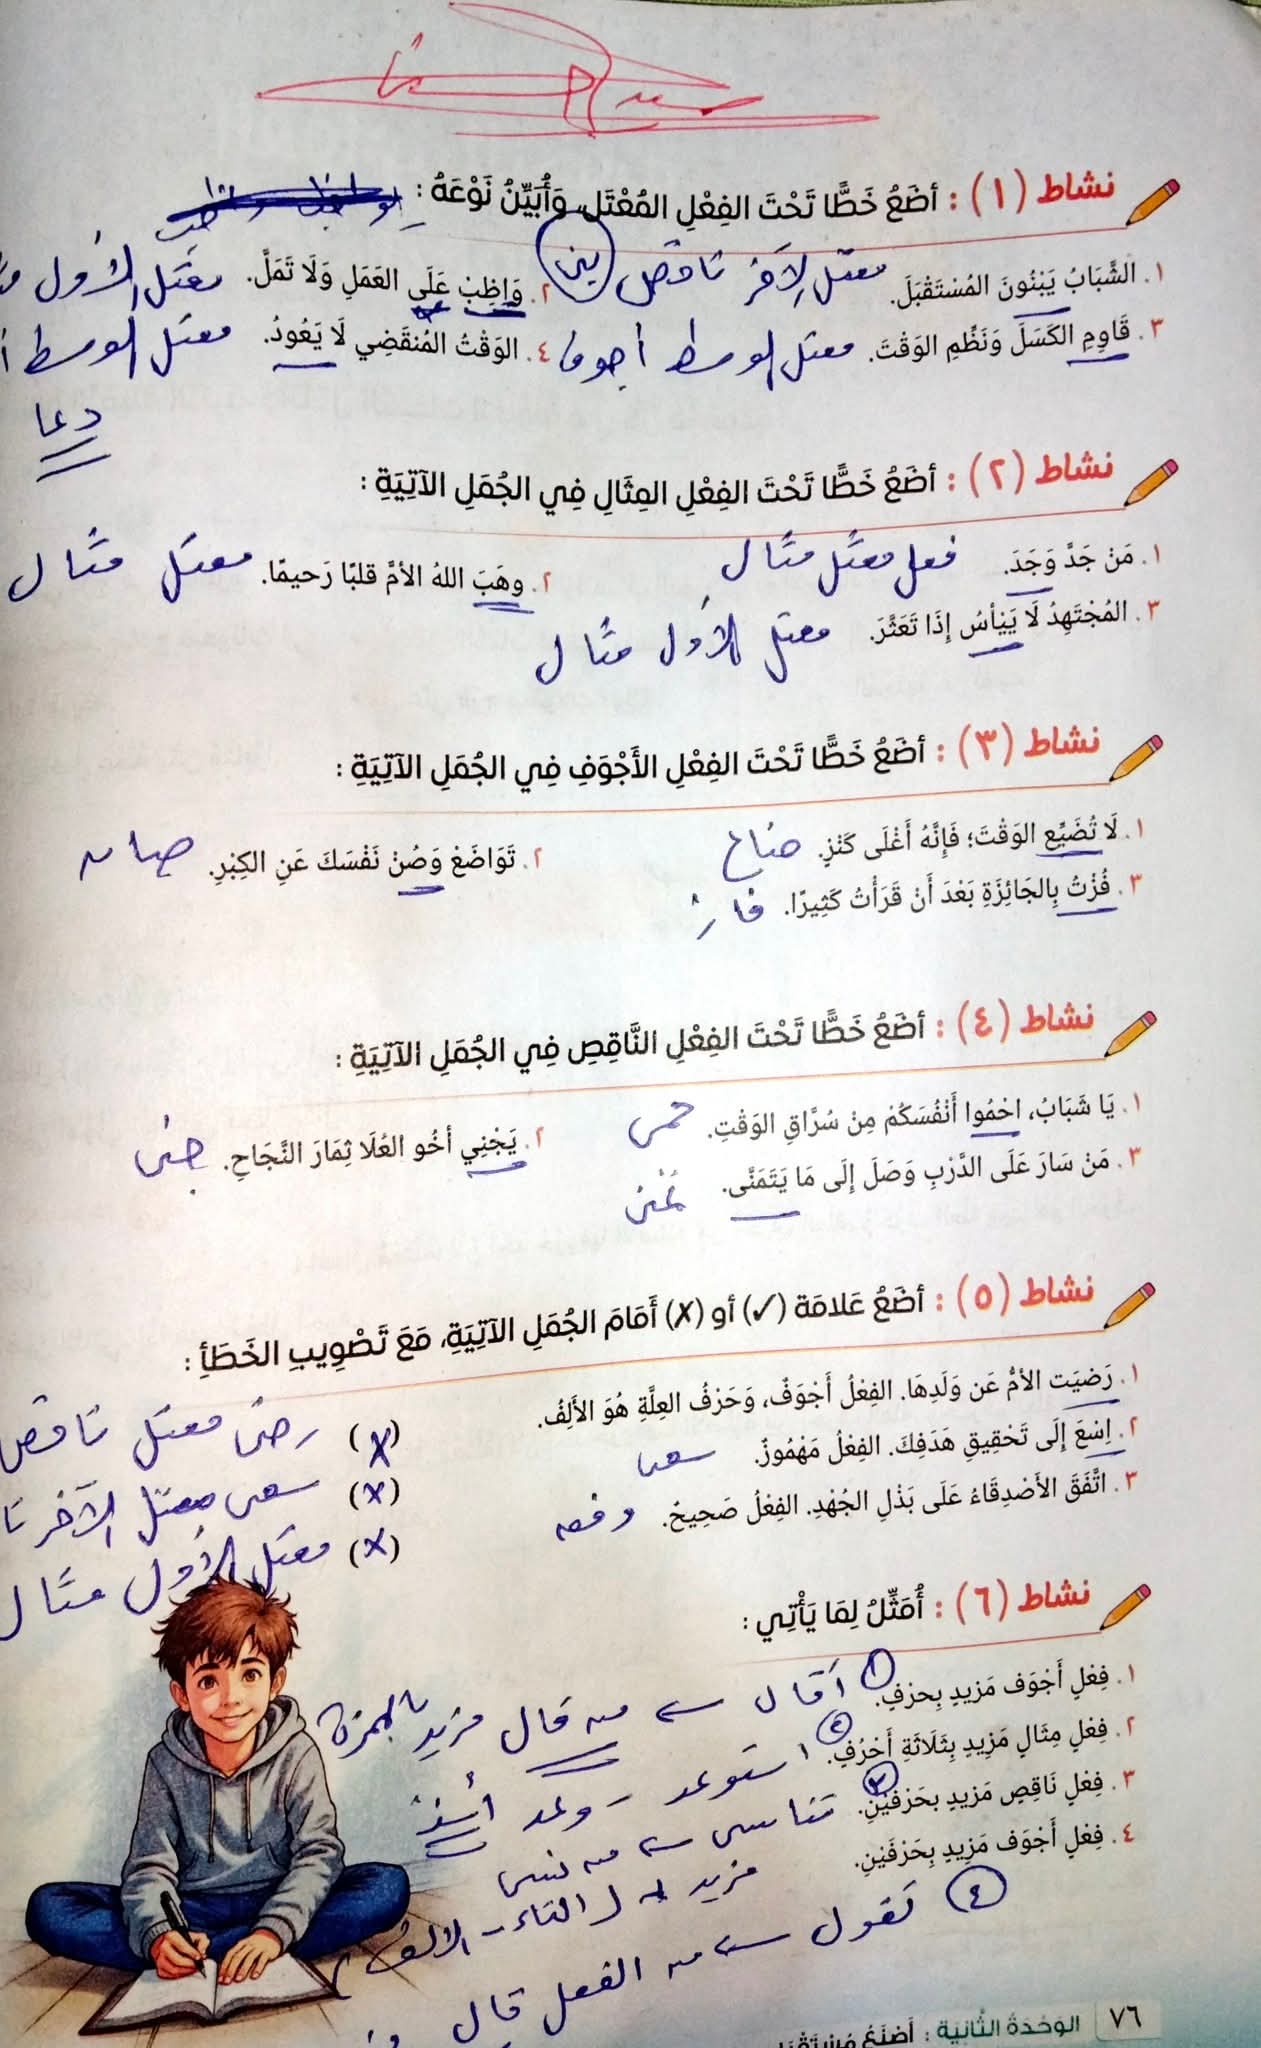 نشاط (١) : أضَعُ خَطًّا تَحْتَ الفِعْلِ المُعْتَلِ وَأُبَيِّنُ نَوْعَهُ :
١. الشَّبَابُ يَبْنُونَ المُسْتَقْبَلَ. معتل الآخر ناقص بنى
٢. وَاظِبْ عَلَى العَمَلِ وَلَا تَمَلَّ. معتل الأول
٣. قَاوِمِ الكَسَلَ وَنَظِّمِ الوَقْتَ. معتل الوسط أجوف
٤. الوَقْتُ المُنقَضِي لَا يَعُودُ. معتل الوسط
دعا
نشاط (٢) : أضَعُ خَطًّا تَحْتَ الفِعْلِ المِثَالِ فِي الجُمَلِ الآتِيَةِ :
١. مَنْ جَدَّ وَجَدَ. فعل معتل مثال
٢. وهَبَ اللهُ الأمَّ قلبًا رَحيمًا. معتل مثال
٣. المُجْتَهِدُ لَا يَيْأسُ إذَا تَعَثَّرَ. معتل الأول مثال
نشاط (٣) : أضَعُ خَطًّا تَحْتَ الفِعْلِ الأَجْوَفِ فِي الجُمَلِ الآتِيَةِ :
١. لَا تُضَيِّعِ الوَقْتَ؛ فَإِنَّهُ أَغْلَى كَنْزٍ. ضاع
٢. تَوَاضَعْ وَصُنْ نَفْسَكَ عَنِ الكِبْرِ. صان
٣. فُزْتُ بِالجَائِزَةِ بَعْدَ أَنْ قَرَأْتُ كَثِيرًا. فاز
نشاط (٤) : أضَعُ خَطًّا تَحْتَ الفِعْلِ النَّاقِصِ فِي الجُمَلِ الآتِيَةِ :
١. يَا شَبَابُ، احْمُوا أَنْفُسَكُمْ مِنْ سُرَّاقِ الوَقْتِ. حمى
٢. يَجْنِي أخُو العُلَا ثِمَارَ النَّجَاحِ. جنى
٣. مَنْ سَارَ عَلَى الدَّرْبِ وَصَلَ إلَى مَا يَتَمَنَّى. تمنى
نشاط (٥) : أضَعُ عَلامَة (✓) أو (✗) أَمَامَ الجُمَلِ الآتِيَةِ، مَعَ تَصْوِيبِ الخَطَأِ :
١. رَضيَت الأمُّ عَن وَلَدِهَا. الفِعْلُ أَجْوَفُ، وَحَرْفُ العِلَّةِ هُوَ الأَلِفُ. (X) رضى معتل ناقص
٢. اِسْعَ إِلَى تَحْقِيقِ هَدَفِكَ. الفِعْلُ مَهْمُوزٌ. سعى (X) سعى معتل الآخر
٣. اتَّفَقَ الأَصْدِقَاءُ عَلَى بَذْلِ الجُهْدِ. الفِعْلُ صَحِيحٌ. وفق (X) معتل الأول مثال
نشاط (٦) : أُمَثِّلُ لِمَا يَأْتِي :
١. فِعْلٍ أَجْوَف مَزيدٍ بِحرْفٍ. ① أقال من قال مزيد بالهمزة
٢. فِعْلٍ مِثَالٍ مَزِيدٍ بِثَلَاثَةِ أَحْرُفٍ. استوعد - وعد
٣. فِعْلٍ نَاقِصٍ مَزيدٍ بحَرْفَيْنِ. تناسى من نسى
٤. فِعْلٍ أَجْوَف مَزِيدٍ بِحَرْفَيْنِ.
مزيد بـ التاء - الألف
④ تقول من الفعل قال
٧٦ الوَحْدَةُ الثَّانِيَة : أَصْنَعُ